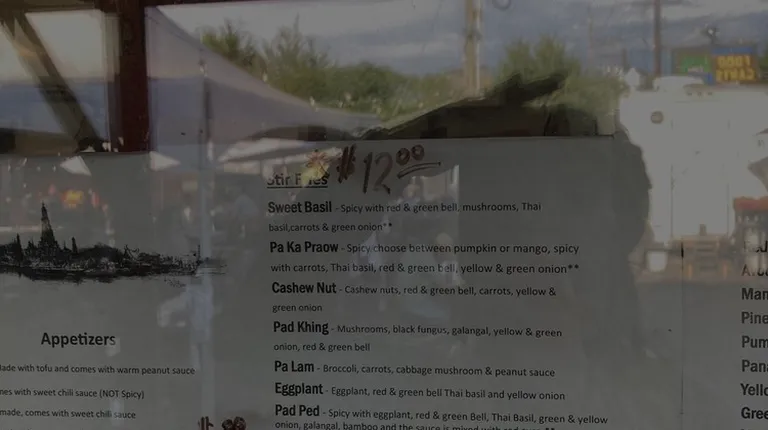 FOOD
CARTS
Stir Fries $12.00
Sweet Basil - Spicy with red & green bell, mushrooms, Thai
basil,carrots & green onion**
Pa Ka Praow - Spicy choose between pumpkin or mango, spicy
with carrots, Thai basil, red & green bell, yellow & green onion**
Cashew Nut - Cashew nuts, red & green bell, carrots, yellow &
green onion
Pad Khing - Mushrooms, black fungus, galangal, yellow & green
onion, red & green bell
Pa Lam - Broccoli, carrots, cabbage mushroom & peanut sauce
Eggplant - Eggplant, red & green bell Thai basil and yellow onion
Pad Ped - Spicy with eggplant, red & green Bell, Thai Basil, green & yellow
onion, galangal, bamboo and the sauce is mixed with
Appetizers
Made with tofu and comes with warm peanut sauce
with sweet chili sauce (NOT Spicy)
made, comes with sweet chili sauce
Man
Pine
Pum
Pana
Yello
Gree